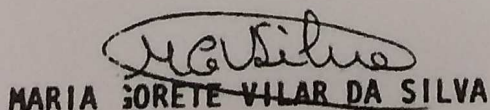 MGVSilva
MARIA GORETE VILAR DA SILVA